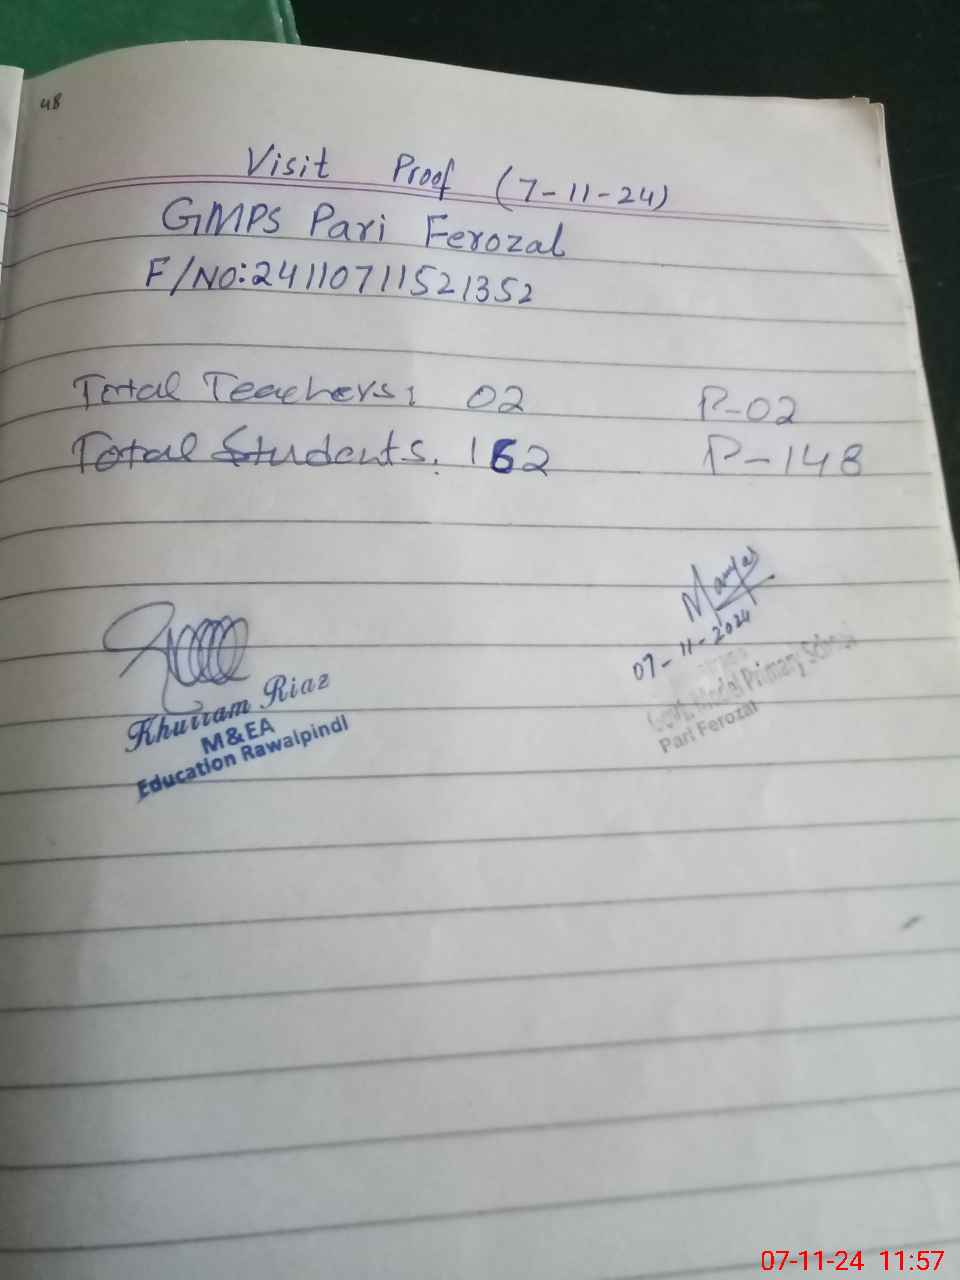 48
Visit Proof (7-11-24)
GMPS Pari Ferozal
F/NO:24110711521352
Total Teachers: 02 P-02
Total Students. 162 P-148
07-11-2024
Khurram Riaz
M&EA
Education Rawalpindi
Govt. Model Primary School
Pari Ferozal
07-11-24 11:57